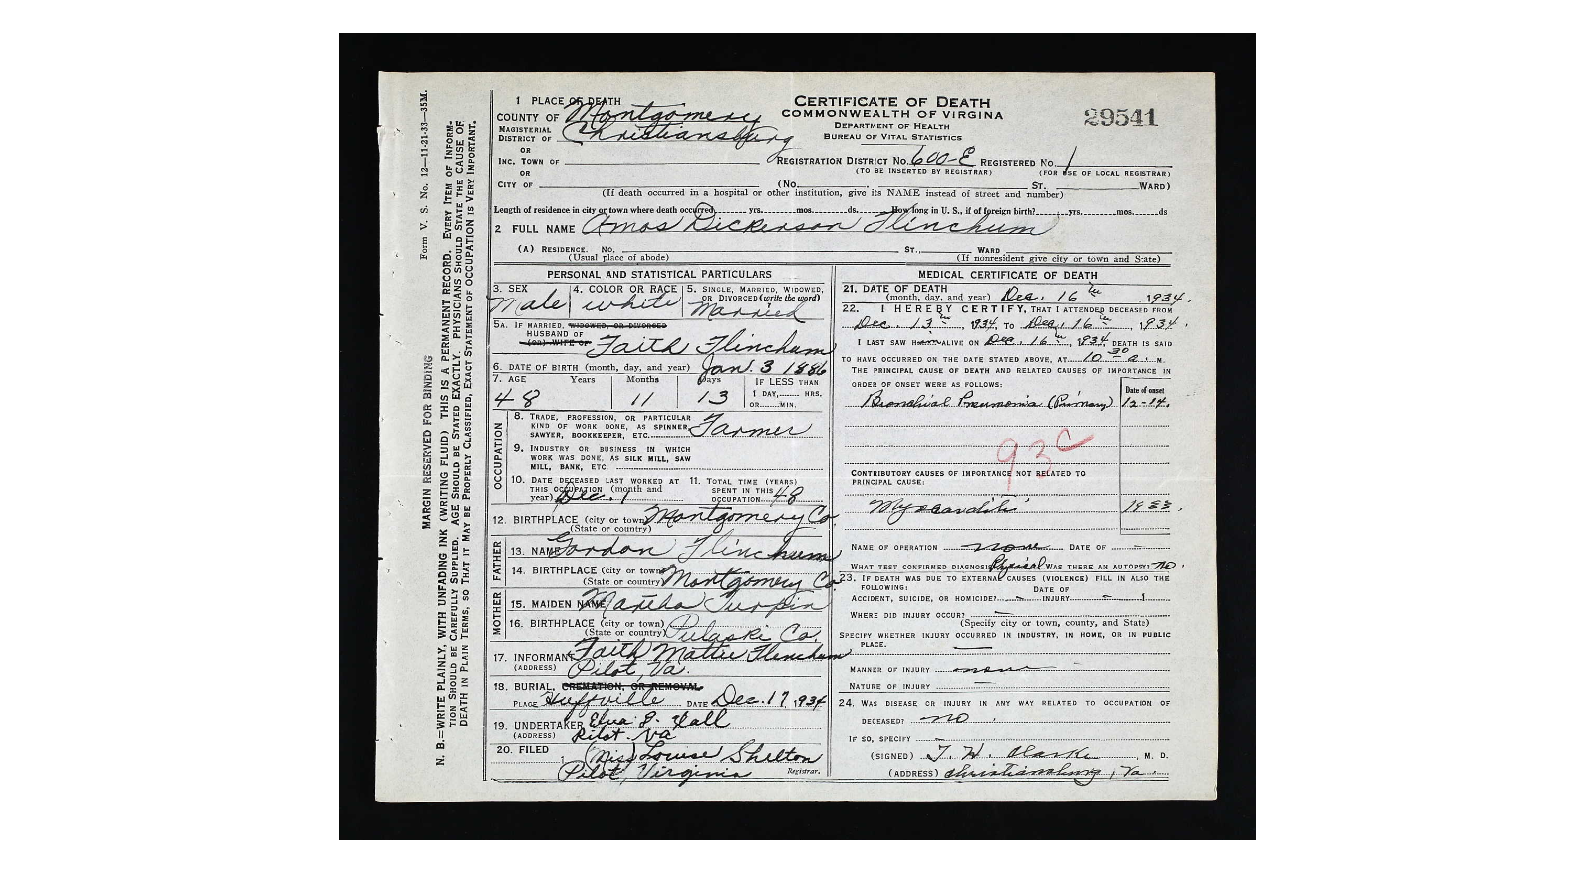 Form V. S. No. 12—11-21-33—35M.
MARGIN RESERVED FOR BINDING
N. B.—WRITE PLAINLY, WITH UNFADING INK (WRITING FLUID) THIS IS A PERMANENT RECORD. EVERY ITEM OF INFORM-
TION SHOULD BE CAREFULLY SUPPLIED. AGE SHOULD BE STATED EXACTLY. PHYSICIANS SHOULD STATE THE CAUSE OF
DEATH IN PLAIN TERMS, SO THAT IT MAY BE PROPERLY CLASSIFIED, EXACT STATEMENT OF OCCUPATION IS VERY IMPORTANT.
CERTIFICATE OF DEATH
COMMONWEALTH OF VIRGINIA
DEPARTMENT OF HEALTH
BUREAU OF VITAL STATISTICS
29541
1 PLACE OF DEATH
COUNTY OF Montgomery
MAGISTERIAL DISTRICT OF Christiansburg
OR
INC. TOWN OF
REGISTRATION DISTRICT NO. 600-E REGISTERED NO. 1
(TO BE INSERTED BY REGISTRAR) (FOR USE OF LOCAL REGISTRAR)
OR
CITY OF (No. ST. WARD)
(If death occurred in a hospital or other institution, give its NAME instead of street and number)
Length of residence in city or town where death occurred yrs. mos. ds. How long in U. S., if of foreign birth? yrs. mos. ds
2 FULL NAME Amos Dickerson Flinchum
(A) RESIDENCE. No. ST., WARD
(Usual place of abode) (If nonresident give city or town and State)
PERSONAL AND STATISTICAL PARTICULARS
3. SEX Male
4. COLOR OR RACE white
5. SINGLE, MARRIED, WIDOWED, OR DIVORCED (write the word) Married
5A. IF MARRIED, WIDOWED, OR DIVORCED
HUSBAND OF
(OR) WIFE OF Faith Flinchum
6. DATE OF BIRTH (month, day, and year) Jan. 3 1886
7. AGE Years Months Days IF LESS THAN
1 DAY, HRS.
OR MIN.
48 11 13
OCCUPATION
8. TRADE, PROFESSION, OR PARTICULAR
KIND OF WORK DONE, AS SPINNER,
SAWYER, BOOKKEEPER, ETC. Farmer
9. INDUSTRY OR BUSINESS IN WHICH
WORK WAS DONE, AS SILK MILL, SAW
MILL, BANK, ETC
10. DATE DECEASED LAST WORKED AT
THIS OCCUPATION (month and
year) Dec. 1
11. TOTAL TIME (YEARS)
SPENT IN THIS
OCCUPATION 48
12. BIRTHPLACE (city or town) Montgomery Co.
(State or country)
FATHER
13. NAME Gordon Flinchum
14. BIRTHPLACE (city or town) Montgomery Co
(State or country)
MOTHER
15. MAIDEN NAME Martha Turpin
16. BIRTHPLACE (city or town) Pulaski Co.
(State or country)
17. INFORMANT Faith Mattie Flinchum
(ADDRESS) Pilot, Va.
18. BURIAL, CREMATION, OR REMOVAL.
PLACE Huffville DATE Dec. 17, 1934
19. UNDERTAKER Hall
(ADDRESS) Pilot, Va
20. FILED (Miss) Louise Shelton
Pilot, Virginia Registrar.
MEDICAL CERTIFICATE OF DEATH
21. DATE OF DEATH
(month, day, and year) Dec. 16th, 1934.
22. I HEREBY CERTIFY, THAT I ATTENDED DECEASED FROM
Dec. 13th, 1934, TO Dec. 16th, 1934.
I LAST SAW H ALIVE ON Dec. 16th, 1934 DEATH IS SAID
TO HAVE OCCURRED ON THE DATE STATED ABOVE, AT 10 30 a. M.
THE PRINCIPAL CAUSE OF DEATH AND RELATED CAUSES OF IMPORTANCE IN
ORDER OF ONSET WERE AS FOLLOWS: Date of onset
Bronchial Pneumonia (Primary) 12-14.
93c
CONTRIBUTORY CAUSES OF IMPORTANCE NOT RELATED TO
PRINCIPAL CAUSE:
Myocarditis 1933.
NAME OF OPERATION none DATE OF
WHAT TEST CONFIRMED DIAGNOSIS Physical WAS THERE AN AUTOPSY? no.
23. IF DEATH WAS DUE TO EXTERNAL CAUSES (VIOLENCE) FILL IN ALSO THE
FOLLOWING:
ACCIDENT, SUICIDE, OR HOMICIDE? DATE OF INJURY
WHERE DID INJURY OCCUR?
(Specify city or town, county, and State)
SPECIFY WHETHER INJURY OCCURRED IN INDUSTRY, IN HOME, OR IN PUBLIC
PLACE.
MANNER OF INJURY none
NATURE OF INJURY
24. WAS DISEASE OR INJURY IN ANY WAY RELATED TO OCCUPATION OF
DECEASED? no
IF SO, SPECIFY
(SIGNED) T. H. Clarke M. D.
(ADDRESS) Christiansburg, Va.